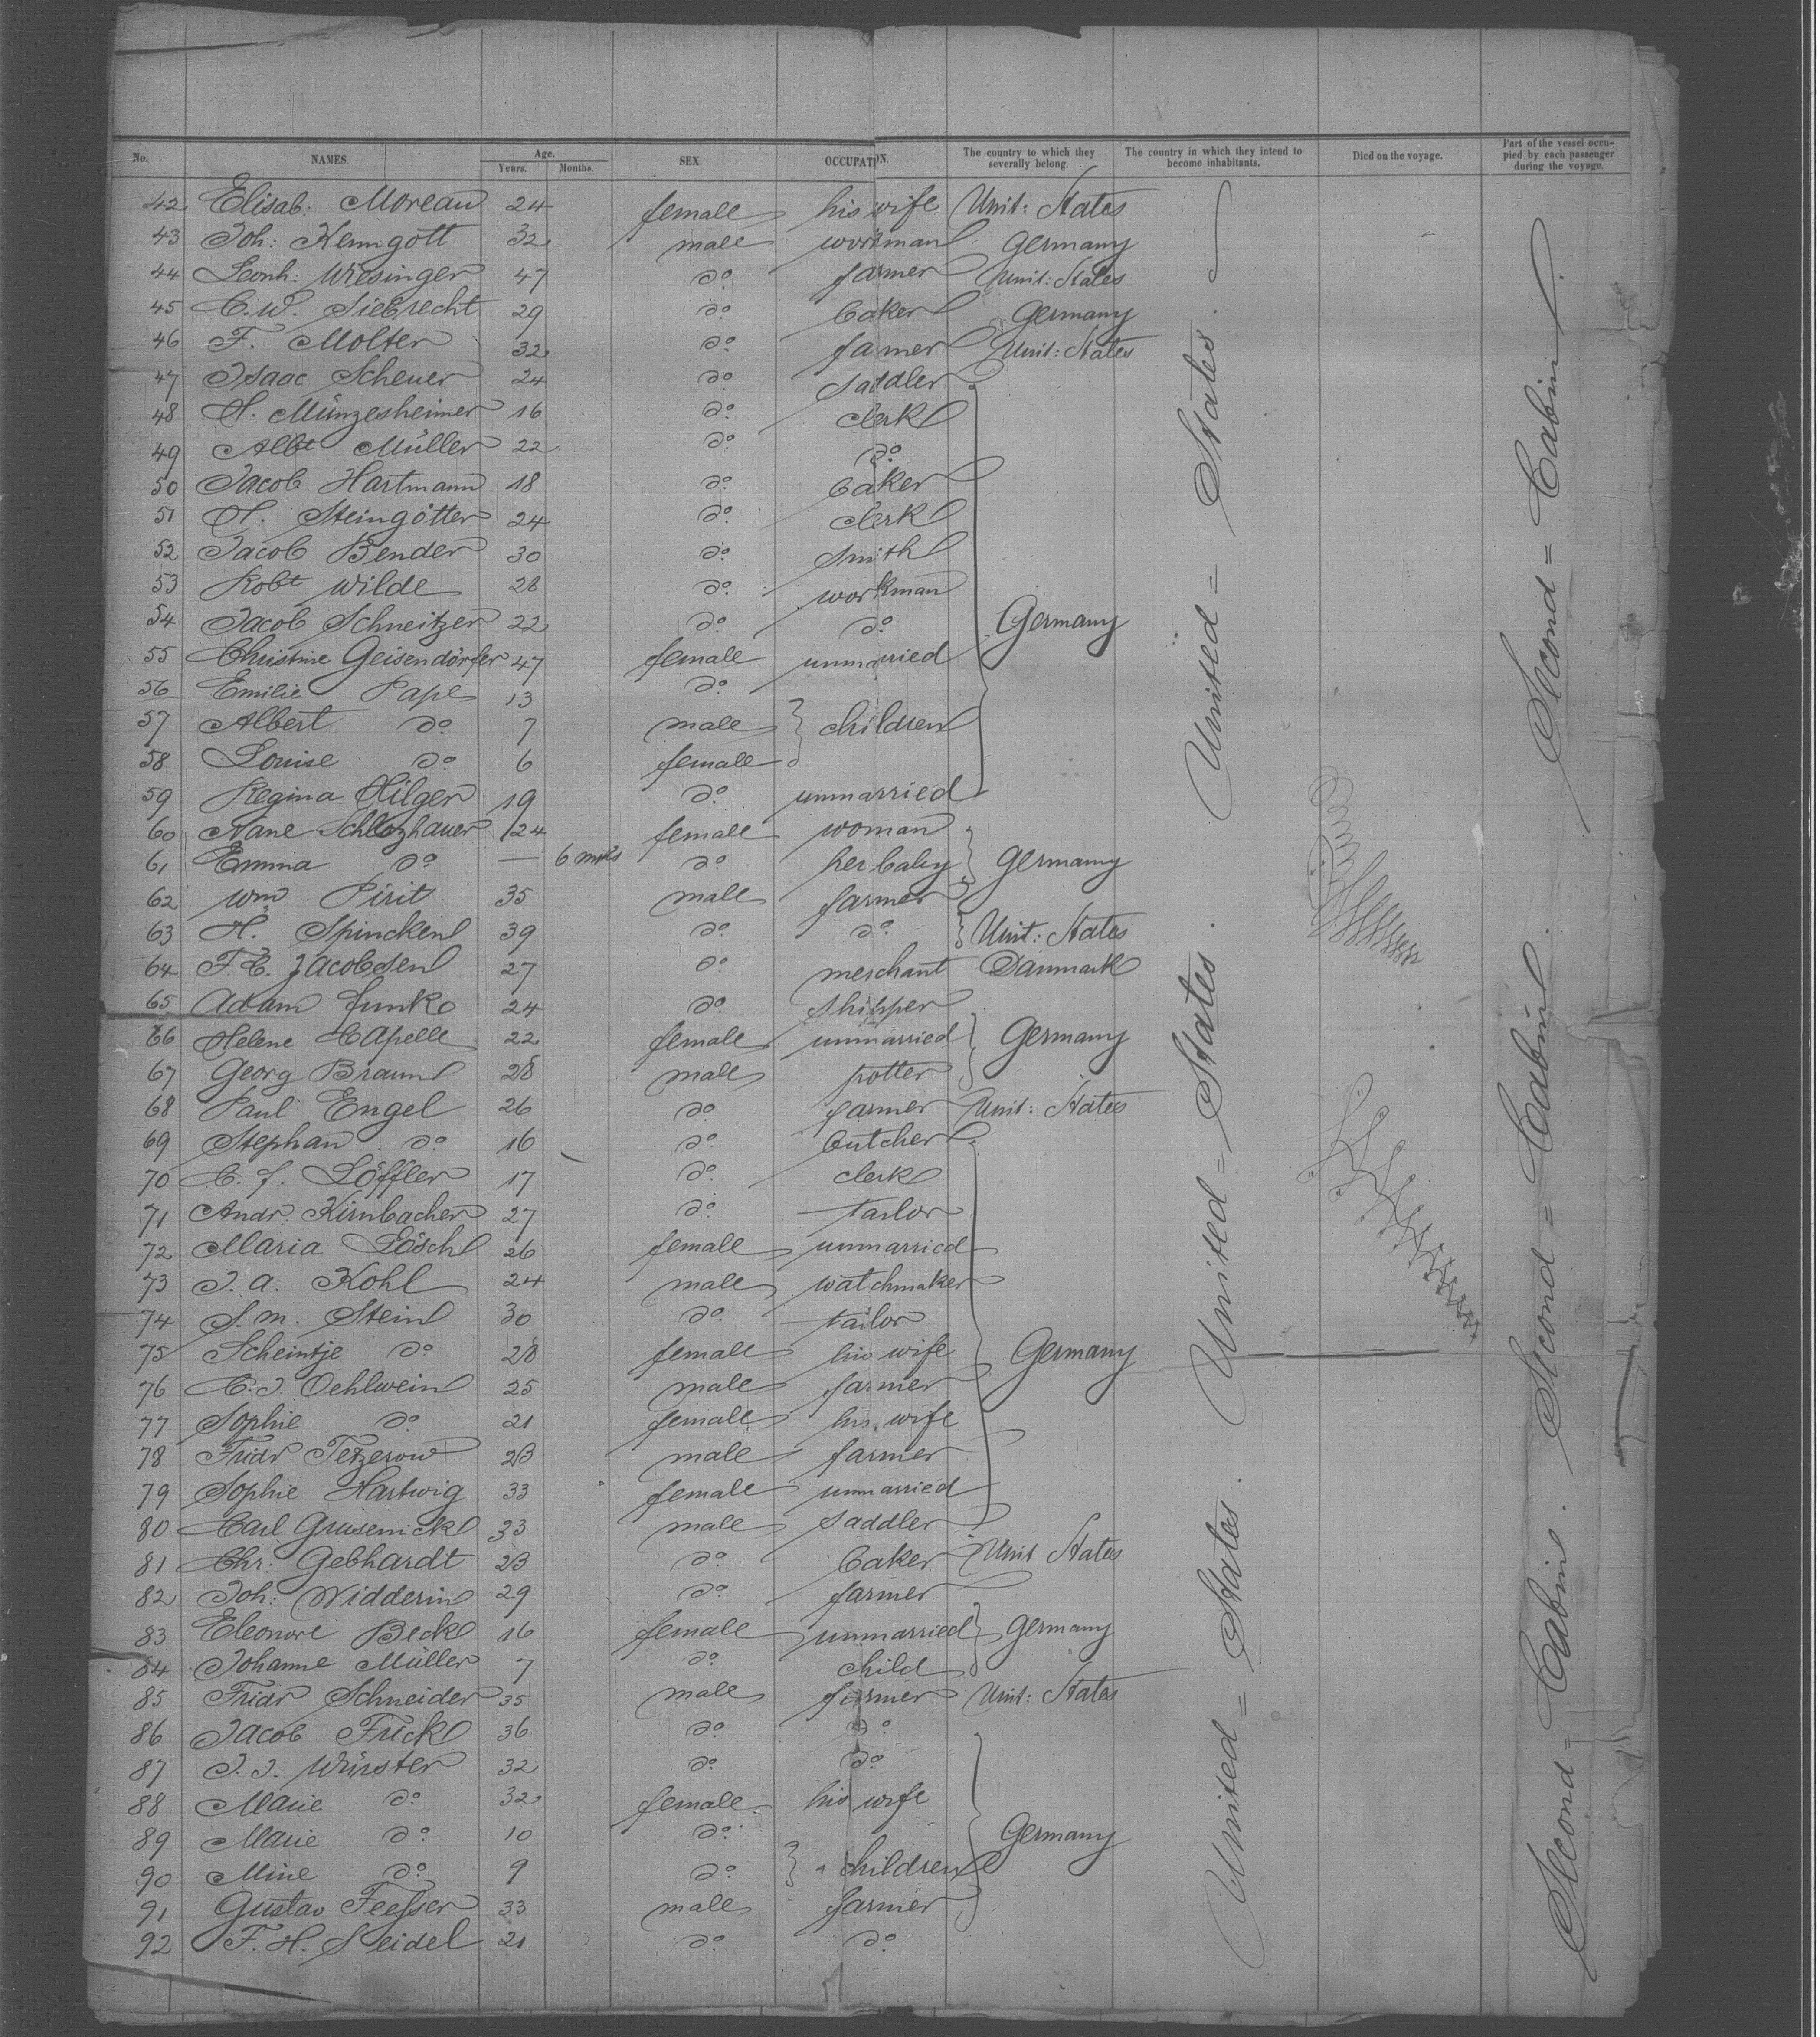 No. NAMES. Age. Years. Months. SEX. OCCUPATION. The country to which they severally belong. The country in which they intend to become inhabitants. Died on the voyage. Part of the vessel occupied by each passenger during the voyage.
42 Elisab: Moreau 24 female his wife Unit: States
43 Joh: Kemngott 32 male workman Germany
44 Leonh: Wiesinger 47 do farmer Unit: States
45 C. W. Siebrecht 29 do baker Germany
46 F. Molter 32 do farmer Unit: States
47 Isaac Scheuer 24 do saddler
48 H. Münzesheimer 16 do clerk
49 Albt Müller 22 do do
50 Jacob Hartmann 18 do baker
51 H. Steingötter 24 do clerk
52 Jacob Bender 30 do smith
53 Robt Wilde 28 do workman
54 Jacob Schneitzer 22 do do Germany
55 Christine Geisendörfer 47 female unmarried
56 Emilie Pape 13 do
57 Albert do 7 male children
58 Louise do 6 female
59 Regina Hilger 19 do unmarried
60 Nane 24 female woman
61 Emma do — 6 mnts do her baby Germany
62 Wm Pirit 35 male farmer
63 H. Spincken 39 do do Unit: States
64 F. C. Jacobsen 27 do merchant Danmark
65 Adam Funk 24 do shipper
66 Helene Capelle 22 female unmarried Germany
67 Georg Braun 28 male potter
68 Paul Engel 26 do farmer Unit: States
69 Stephan do 16 do butcher
70 C. F. Löffler 17 do clerk
71 Andr: Kirnbacher 27 do tailor
72 Maria Lösch 26 female unmarried
73 J. A. Kohl 24 male watchmaker
74 S. M. Stein 30 do tailor
75 Scheintje do 28 female his wife Germany
76 C. J. Oehlwein 25 male farmer
77 Sophie do 21 female his wife
78 Fridr Tetzerow 23 male farmer
79 Sophie Hartwig 33 female unmarried
80 Carl Grusenick 33 male saddler
81 Chr: Gebhardt 23 do baker Unit States
82 Joh: Widderin 29 do farmer
83 Eleonore Beck 16 female unmarried Germany
84 Johanne Müller 7 do child
85 Fridr Schneider 35 male farmer Unit: States
86 Jacob Frick 36 do do
87 J. J. Würster 32 do do
88 Marie do 32 female his wife
89 Marie do 10 do Germany
90 Mine do 9 do children
91 Gustav Feesser 33 male farmer
92 F. H. Seidel 21 do do
United = States.
United = States.
United = States.
Second = Cabin.
Second = Cabin.
Second = Cabin.